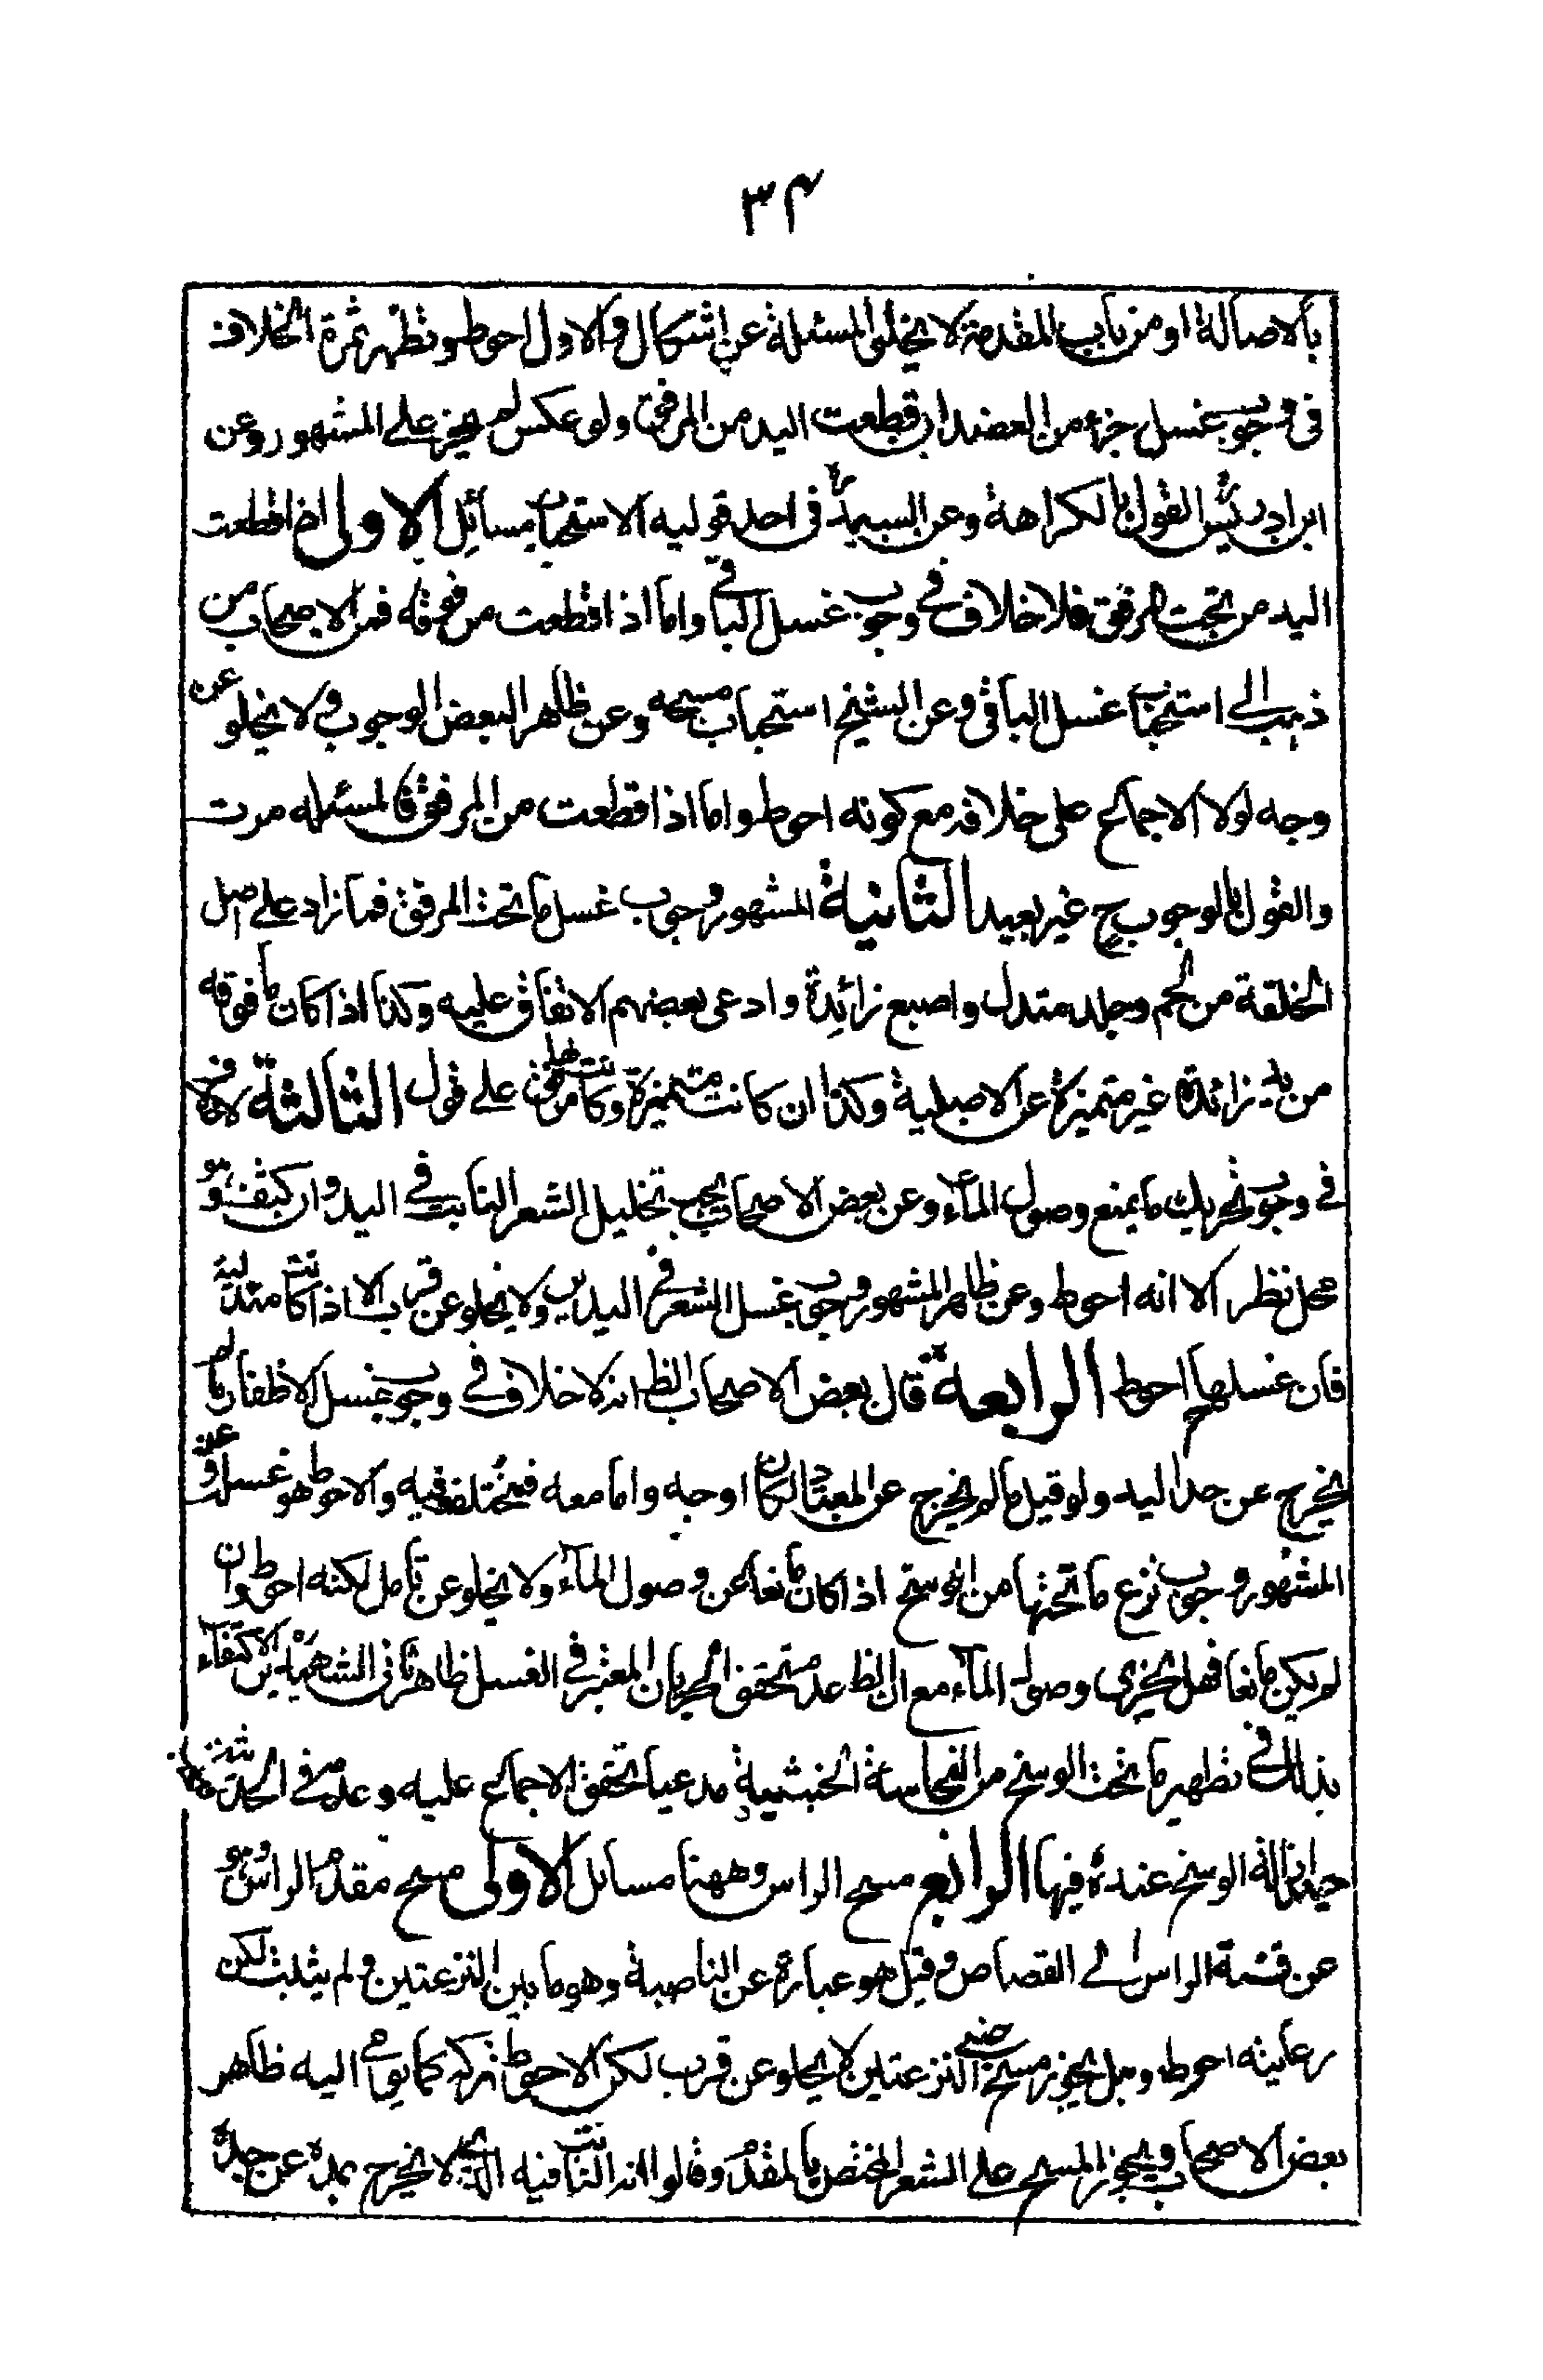 ٣٤
بالاصالة او من باب المقدمة لا يخلو المسئلة عن اشكال والاول احوط وتظهر ثمرة الخلاف
فى وجوب غسل جزء من العضد ان قطعت اليد من المرفق ولو عكس لم يجز على المشهور وعن
ابن ادريس القول بالكراهة وعن السيد ره فى احد قوليه الاستحباب مسائل الاولى اذا قطعت
اليد من تحت المرفق فلا خلاف فى وجوب غسل الباقى واما اذا قطعت من فوقه فمن الاصحاب من
ذهب الى استحباب غسل الباقى وعن الشيخ استحباب مسحه وعن ظاهر البعض الوجوب ولا يخلو عن
وجه لولا الاجماع على خلافه مع كونه احوط واما اذا قطعت من المرفق فالمسئله مرت
والقول بالوجوب ح غير بعيد الثانية المشهور وجوب غسل ما تحت المرفق فما زاد على اصل
الخلقة من لحم وجلد متدل واصبع زائدة وادعى بعضهم الاتفاق عليه وكذا اذا كان ما فوقه
من يد زائدة غير متميزة عن الاصلية وكذا ان كانت متميزة وكانت لها مرفق على قول الثالثة لا خلاف
فى وجوب تحريك ما يمنع وصول الماء وعن بعض الاصحاب يجب تخليل الشعر النابت فى اليد وان كثف وهو
محل نظر الا انه احوط وعن ظاهر المشهور وجوب غسل الشعر فى اليدين ولا يخلو عن قرب الا اذا كانت متدلية
فان غسلها احوط الرابعة قال بعض الاصحاب الظ انه لا خلاف فى وجوب غسل الاظفار ما لم
يخرج عن حد اليد ولو قيل ما لم يخرج عن المعتاد لكان اوجه واما معه فيختلف فيه والاحوط هو غسله وعن
المشهور وجوب نزع ما تحتها من الوسخ اذا كان مانعا عن وصول الماء ولا يخلو عن تامل لكنه احوط وان
لم يكن مانعا فهل يجزى وصول الماء مع ان الظ عدم تحقق الجريان المعتبر فى الغسل ظاهر ثانى الشهيدين الاكتفاء
بذلك فى تطهير ما تحت الوسخ من النجاسة الخبثية مدعيا تحقق الاجماع عليه وعدمه فى الحدثية
ازالة الوسخ عنده فيها الرابع مسح الراس وههنا مسائل الاولى مسح مقدم الراس وهو
من قمة الراس الى القصاص وقيل هو عبارة عن الناصية وهو ما بين النزعتين ولم يثبت لكن
رعاينه احوط وهل يجوز مسح النزعتين لا يخلو عن قرب لكن الاحوط تركه كما يومى اليه ظاهر
بعض الاصحاب ويجوز المسح على الشعر المختص بالمقدم وقالوا انه النابت فيه الذى لا يخرج بمده عن حده